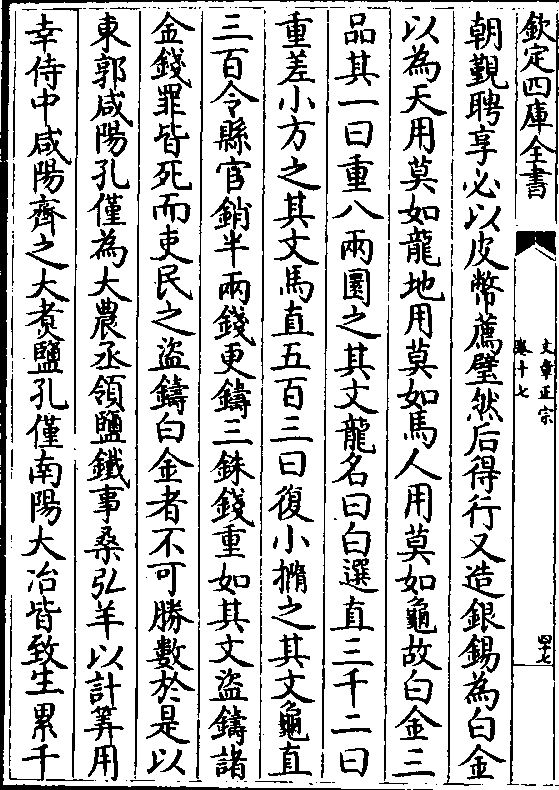 欽定四庫全書
文章正宗
卷十七
四十七
朝覲聘享必以皮幣薦璧然后得行又造銀錫為白金
以為天用莫如龍地用莫如馬人用莫如龜故白金三
品其一曰重八兩圜之其文龍名曰白選直三千二曰
重差小方之其文馬直五百三曰復小撱之其文龜直
三百令縣官銷半兩錢更鑄三銖錢重如其文盜鑄諸
金錢罪皆死而吏民之盜鑄白金者不可勝數於是以
東郭咸陽孔僅為大農丞領鹽鐵事桑弘羊以計筭用
幸侍中咸陽齊之大煑鹽孔僅南陽大冶皆致生累千